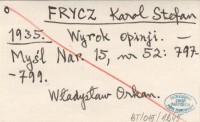 o
FRYCZ Karol Stefan
1935. Wyrok opinji. —
Myśl Nar. 15, nr 52: 797
-799.
Władysław Orkan.
BT/015/